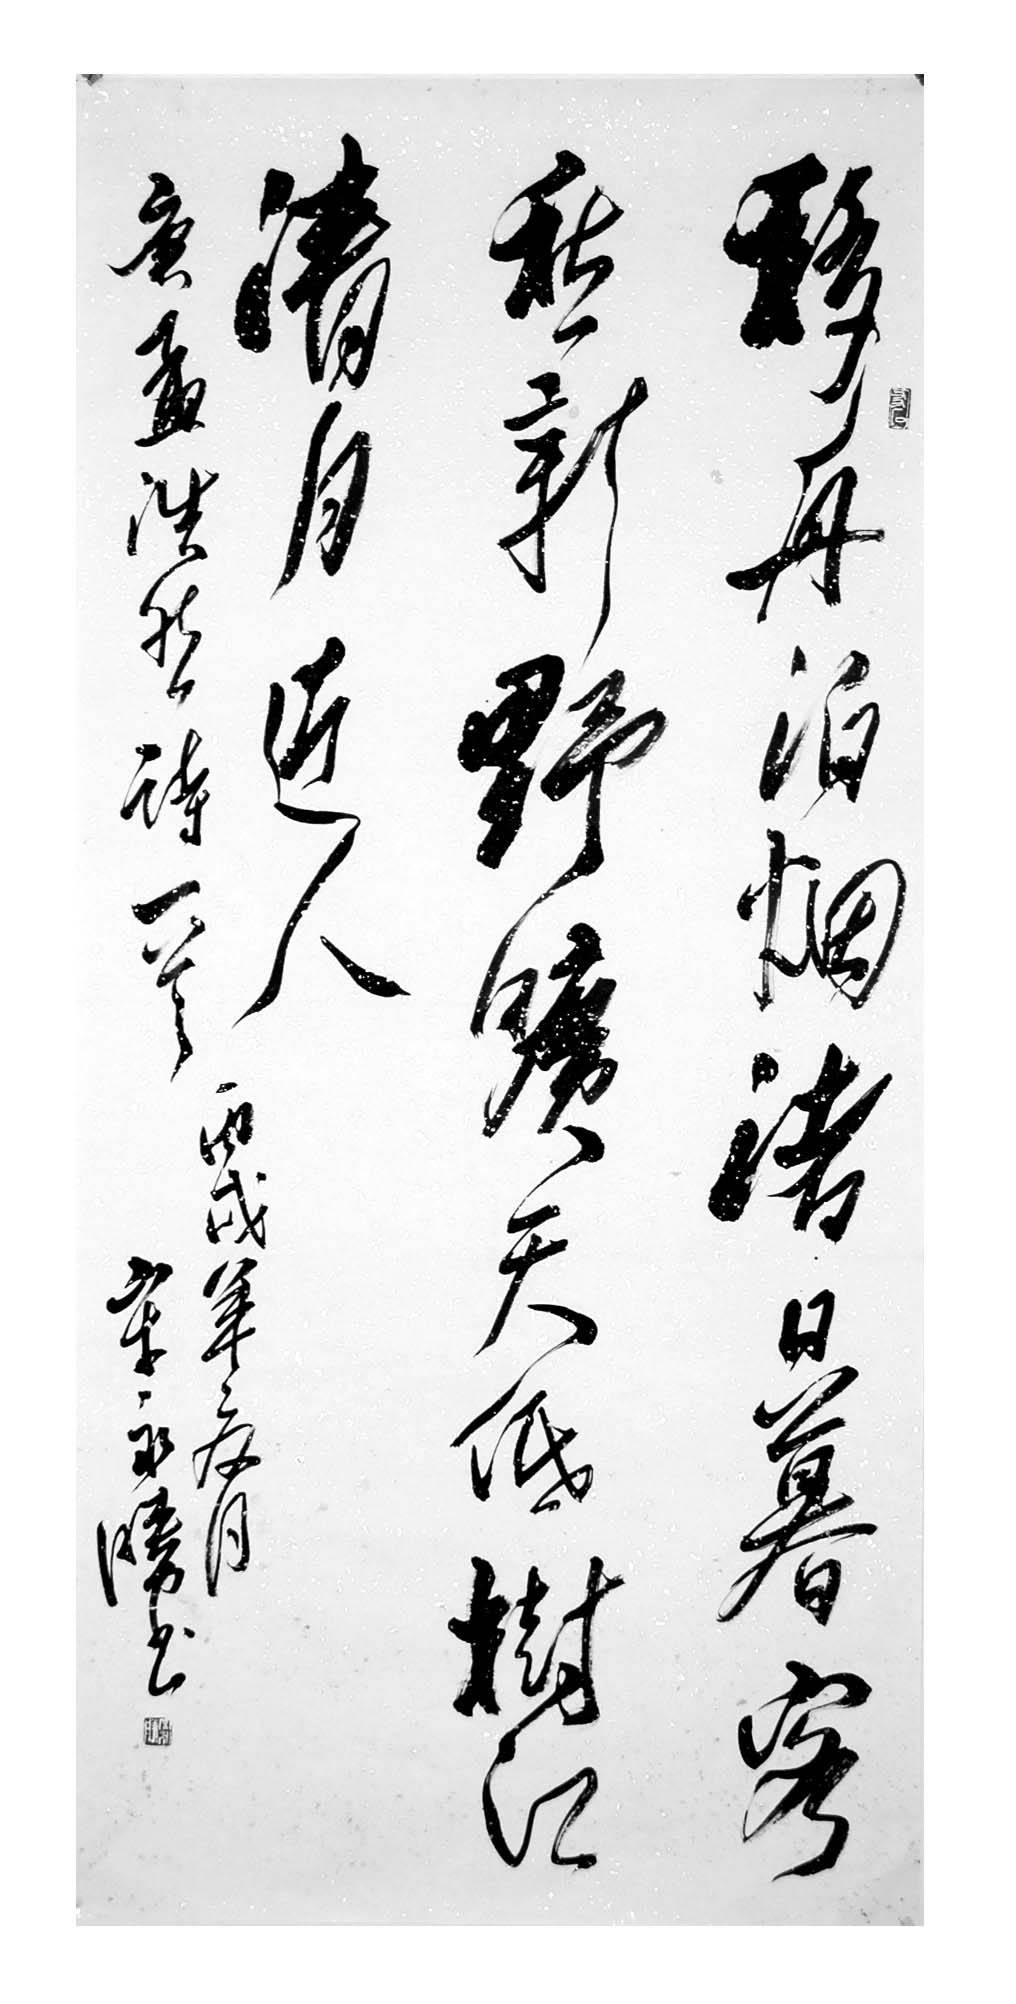 移舟泊烟渚日暮客
愁新野旷天低樹江
清月近人
唐孟浩然詩一首
丙戌年夏月
永
書